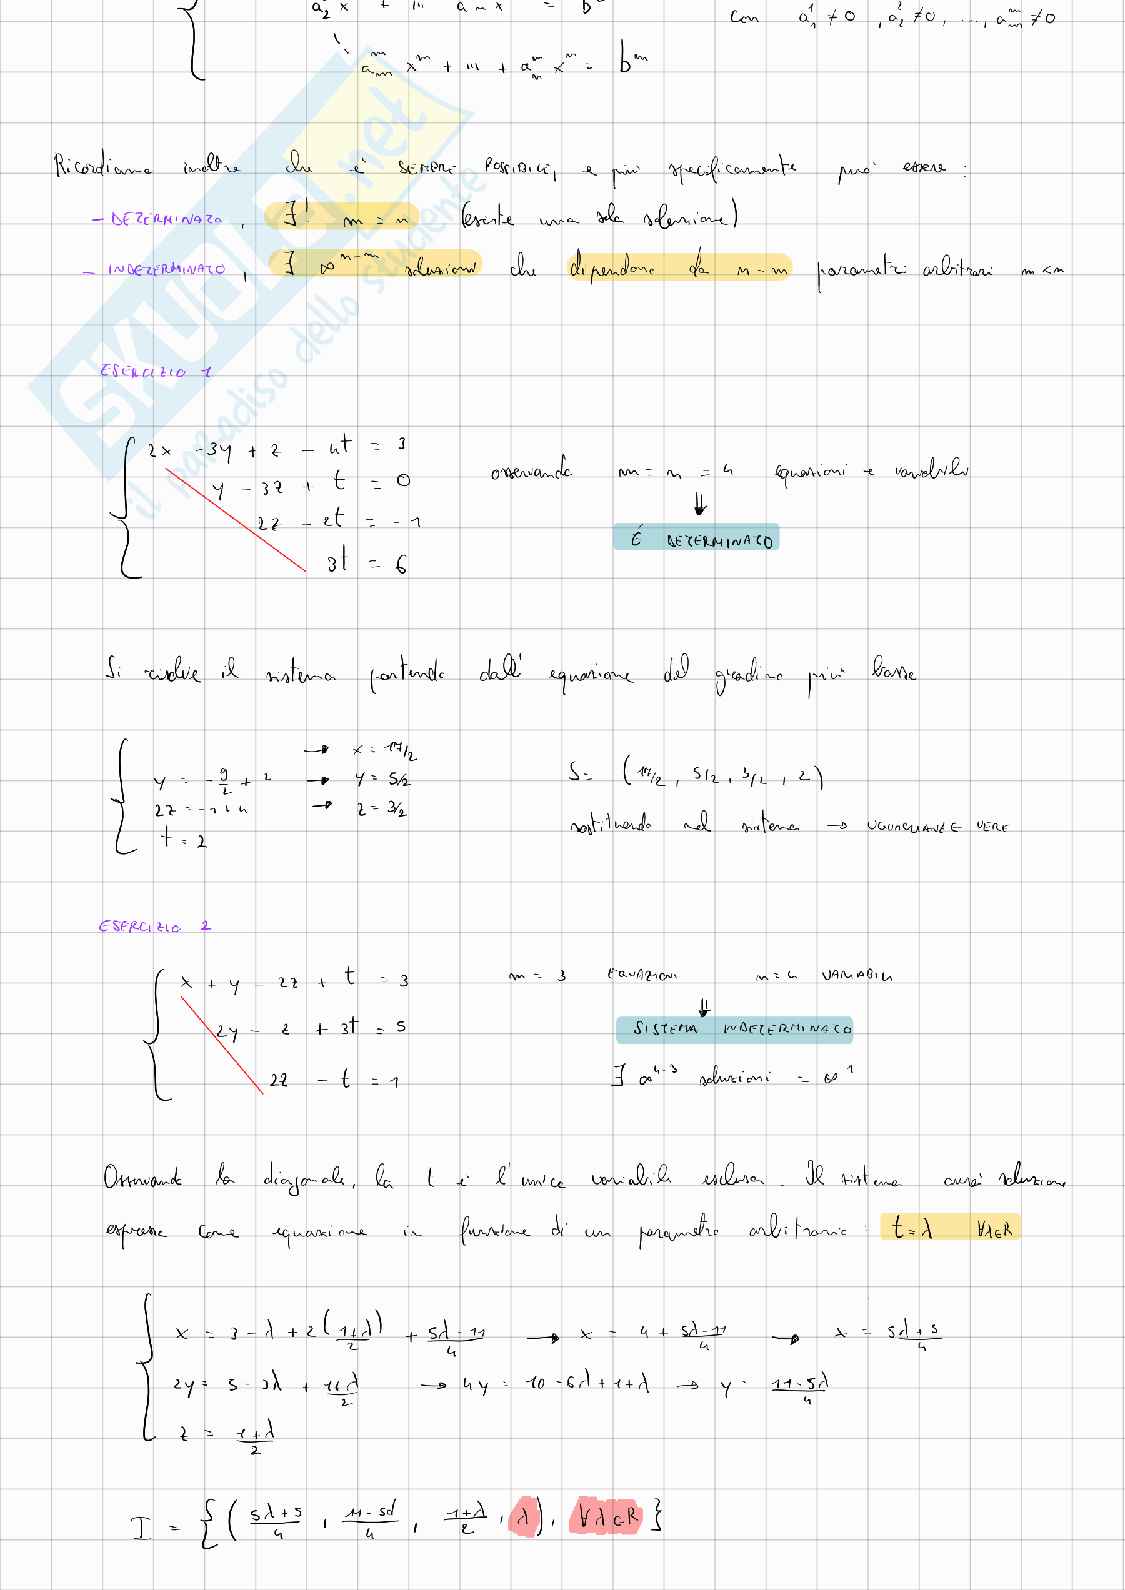 a₂² x + ... aₙ x = b
con a₁¹ ≠ 0 , a₂² ≠ 0 , ..., aₘᵐ ≠ 0
aₘᵐ xᵐ + ... + aₙᵐ xⁿ = bᵐ
Ricordiamo inoltre che è SEMPRE POSSIBILE, e più specificamente può essere :
- DETERMINATO , ∃! m = n (esiste una sola soluzione)
- INDETERMINATO , ∃ ∞ⁿ⁻ᵐ soluzioni che dipendono da n-m parametri arbitrari m<n
ESERCIZIO 1
2x -3y + z - 4t = 3
y - 3z + t = 0
2z - 2t = -1
3t = 6
osservando m = n = 4 equazioni e variabili
⇓
É DETERMINATO
Si risolve il sistema partendo dall' equazione del gradino più basso
→ x = 17/2
y = -9/2 + 2 → y = 5/2
2z = -1+4 → z = 3/2
t = 2
S= (17/2 , 5/2 , 3/2 , 2)
sostituendo nel sistema → UGUAGLIANZE VERE
ESERCIZIO 2
x + y - 2z + t = 3
2y - z + 3t = 5
2z - t = 1
m = 3 EQUAZIONI n = 4 VARIABILI
⇓
SISTEMA INDETERMINATO
∃ ∞⁴⁻³ soluzioni = ∞¹
Osservando la diagonale, la t è l'unica variabile esclusa. Il sistema avrà soluzione
espressa come equazione in funzione di un parametro arbitrario : t=λ ∀λ∈R
x = 3 - λ + 2(1+λ/2) + 5λ-11/4 → x = 4 + 5λ-11/4 → x = 5λ+5/4
2y = 5 - 3λ + 1+λ/2 → 4y = 10 -6λ+1+λ → y = 11-5λ/4
z = 1+λ/2
I = {(5λ+5/4 , 11-5λ/4 , 1+λ/2 , λ), ∀λ∈R}
SKUOLA.net
il paradiso dello studente